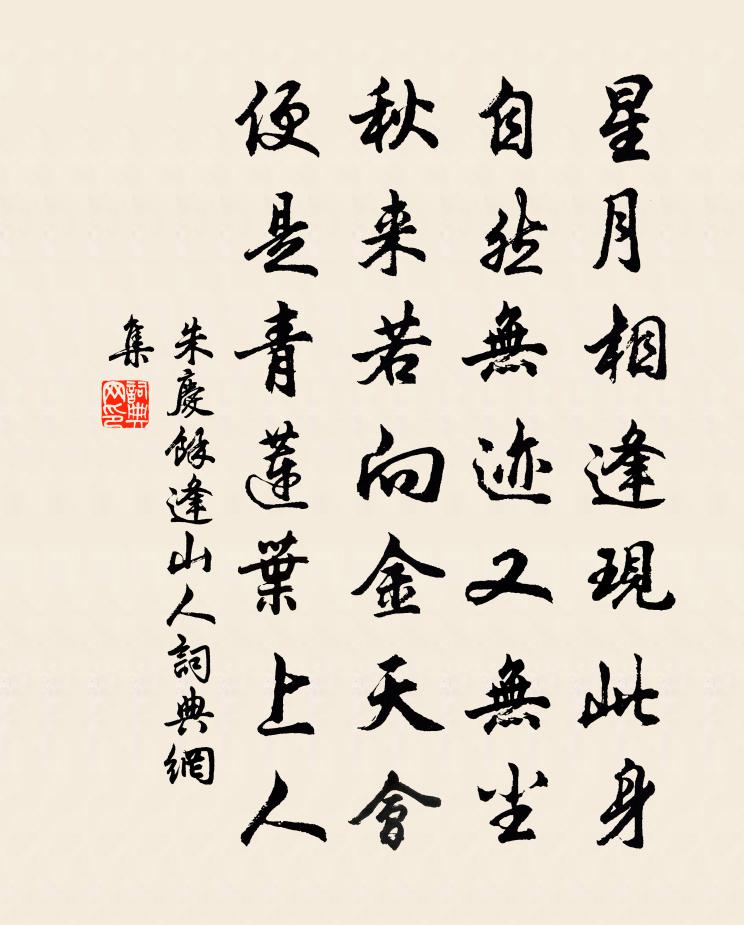 星月相逢現此身
自然無迹又無尘
秋来若向金天會
便是青蓮葉上人
朱慶餘逢山人詞典網
集
詞典
网印